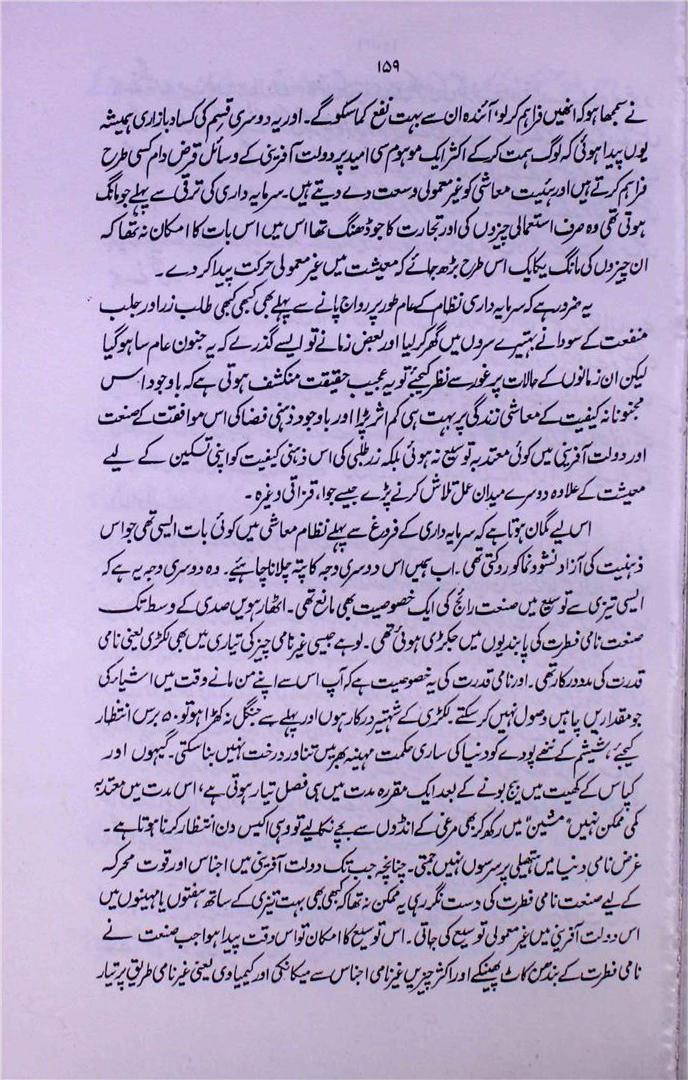 ۱۵۹
نے سمجھا ہو کہ انھیں فراہم کر لو، آئندہ ان سے بہت نفع کما سکو گے۔ اور یہ دوسری قسم کی کساد بازاری ہمیشہ
یوں پیدا ہوئی کہ لوگ ہمت کر کے اکثر ایک موہوم سی امید پر دولت آفرینی کے وسائل قرض دام کسی طرح
فراہم کرتے ہیں اور ہئیت معاشی کو غیر معمولی وسعت دے دیتے ہیں۔ سرمایہ داری کی ترقی سے پہلے جو مانگ
ہوتی تھی وہ صرف استعمالی چیزوں کی اور تجارت کا جو ڈھنگ تھا اس میں اس بات کا امکان نہ تھا کہ
ان چیزوں کی مانگ یکایک اس طرح بڑھ جائے کہ معیشت میں غیر معمولی حرکت پیدا کر دے۔
یہ ضرور ہے کہ سرمایہ داری نظام کے عام طور پر رواج پانے سے پہلے بھی کبھی کبھی طلب زر اور جلب
منفعت کے سودا نے بہتیرے سروں میں گھر کر لیا اور بعض زمانے تو ایسے گذرے کہ یہ جنون عام سا ہو گیا
لیکن ان زمانوں کے حالات پر غور سے نظر کیجئے تو یہ عجیب حقیقت منکشف ہوتی ہے کہ باوجود اس
مجنونانہ کیفیت کے معاشی زندگی پر بہت ہی کم اثر پڑا اور باوجود ذہنی فضا کی اس موافقت کے صنعت
اور دولت آفرینی میں کوئی معتدبہ توسیع نہ ہوئی بلکہ زر طلبی کی اس ذہنی کیفیت کو اپنی تسکین کے لیے
معیشت کے علاوہ دوسرے میدان عمل تلاش کرنے پڑے جیسے جوا، قزاقی وغیرہ۔
اس لیے گمان ہوتا ہے کہ سرمایہ داری کے فروغ سے پہلے نظام معاشی میں کوئی بات ایسی تھی جو اس
ذہنیت کی آزاد نشو و نما کو روکتی تھی۔ اب ہمیں اس دوسری وجہ کا پتہ چلانا چاہئے۔ وہ دوسری وجہ یہ ہے کہ
ایسی تیزی سے توسیع میں صنعت رائج کی ایک خصوصیت بھی مانع تھی۔ اٹھارہویں صدی کے وسط تک
صنعت نامی فطرت کی پابندیوں میں جکڑی ہوئی تھی۔ لوہے جیسی غیر نامی چیز کی تیاری میں بھی لکڑی یعنی نامی
قدرت کی مدد درکار تھی۔ اور نامی قدرت کی یہ خصوصیت ہے کہ آپ اس سے اپنے من مانے وقت میں اشیاء کی
جو مقداریں چاہیں وصول نہیں کر سکتے۔ لکڑی کے شہتیر درکار ہوں اور پہلے سے جنگل نہ کھڑا ہو تو ۵۰ برس انتظار
کیجئے، شیشم کے ننھے پودے کو دنیا کی ساری حکمت مہینہ بھر میں تناور درخت نہیں بنا سکتی۔ گیہوں اور
کپاس کے کھیت میں بیج بونے کے بعد ایک مقررہ مدت میں ہی فصل تیار ہوتی ہے، اس مدت میں معتدبہ
کمی ممکن نہیں "مشین" میں رکھ کر بھی مرغی کے انڈوں سے بچے نکالیے تو وہی اکیس دن انتظار کرنا ہوتا ہے۔
غرض نامی دنیا میں ہتھیلی پر سرسوں نہیں جمتی۔ چنانچہ جب تک دولت آفرینی میں اجناس اور قوت محرکہ
کے لیے صنعت نامی فطرت کی دست نگر رہی یہ ممکن نہ تھا کہ کبھی بھی بہت تیزی کے ساتھ ہفتوں یا مہینوں میں
اس دولت آفرینی میں غیر معمولی توسیع کی جاتی۔ اس توسیع کا امکان تو اس وقت پیدا ہوا جب صنعت نے
نامی فطرت کے بندھن کاٹ پھینکے اور اکثر چیزیں غیر نامی اجناس سے میکانکی اور کیمیاوی یعنی غیر نامی طریق پر تیار